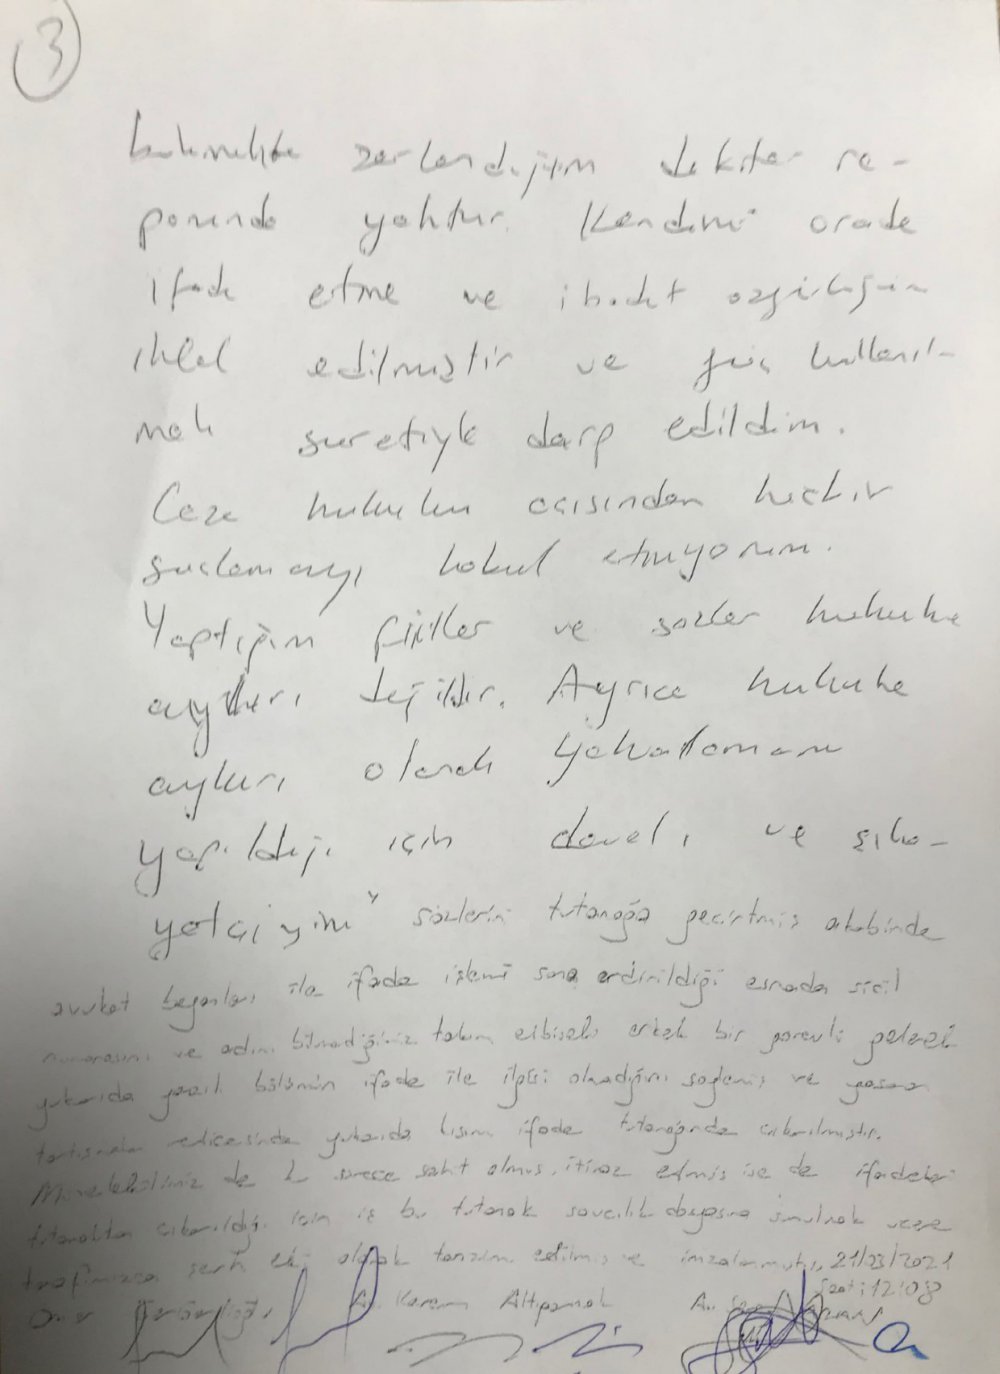 3
bulunmakta zorlandığım doktor ra-
porunda yoktur. Kendimi orada
ifade etme ve ibadet özgürlüğüm
ihlal edilmiştir ve güç kullanıl-
mak suretiyle darp edildim.
Ceza hukuku açısından hiçbir
suçlamayı kabul etmiyorum.
Yaptığım fiiller ve sözler hukuka
aykırı değildir. Ayrıca hukuka
aykırı olarak yakalamam
yapıldığı için davalı ve şika-
yetçiyim" sözlerini tutanağa geçirtmiş akabinde
avukat beyanları ile ifade işlemi sona erdirildiği esnada sicil
numarasını ve adını bilmediğimiz takım elbiseli erkek bir görevli gelerek
yukarıda yazılı bölümün ifade ile ilgisi olmadığını söylemiş ve yaşanan
tartışmalar neticesinde yukarıda kısım ifade tutanağından çıkarılmıştır.
Müvekkilimiz de bu sürece şahit olmuş, itiraz etmiş ise de ifadeleri
tutanaktan çıkarıldığı için iş bu tutanak savcılık dosyasına sunulmak üzere
tarafımızca şerh eki olarak tanzim edilmiş ve imzalanmıştır. 21/03/2021
Saat: 12:08
Ömer Av. Kerem Altıparmak Av.